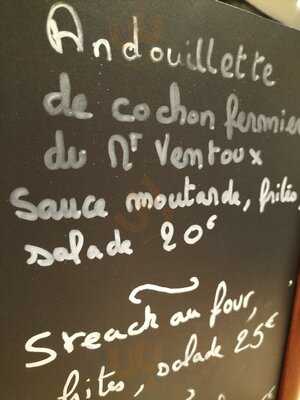 Andouillette
de cochon fermier
du Mt Ventoux
Sauce moutarde, frites,
salade 20€
Sreack au four,
frites, salade 25€